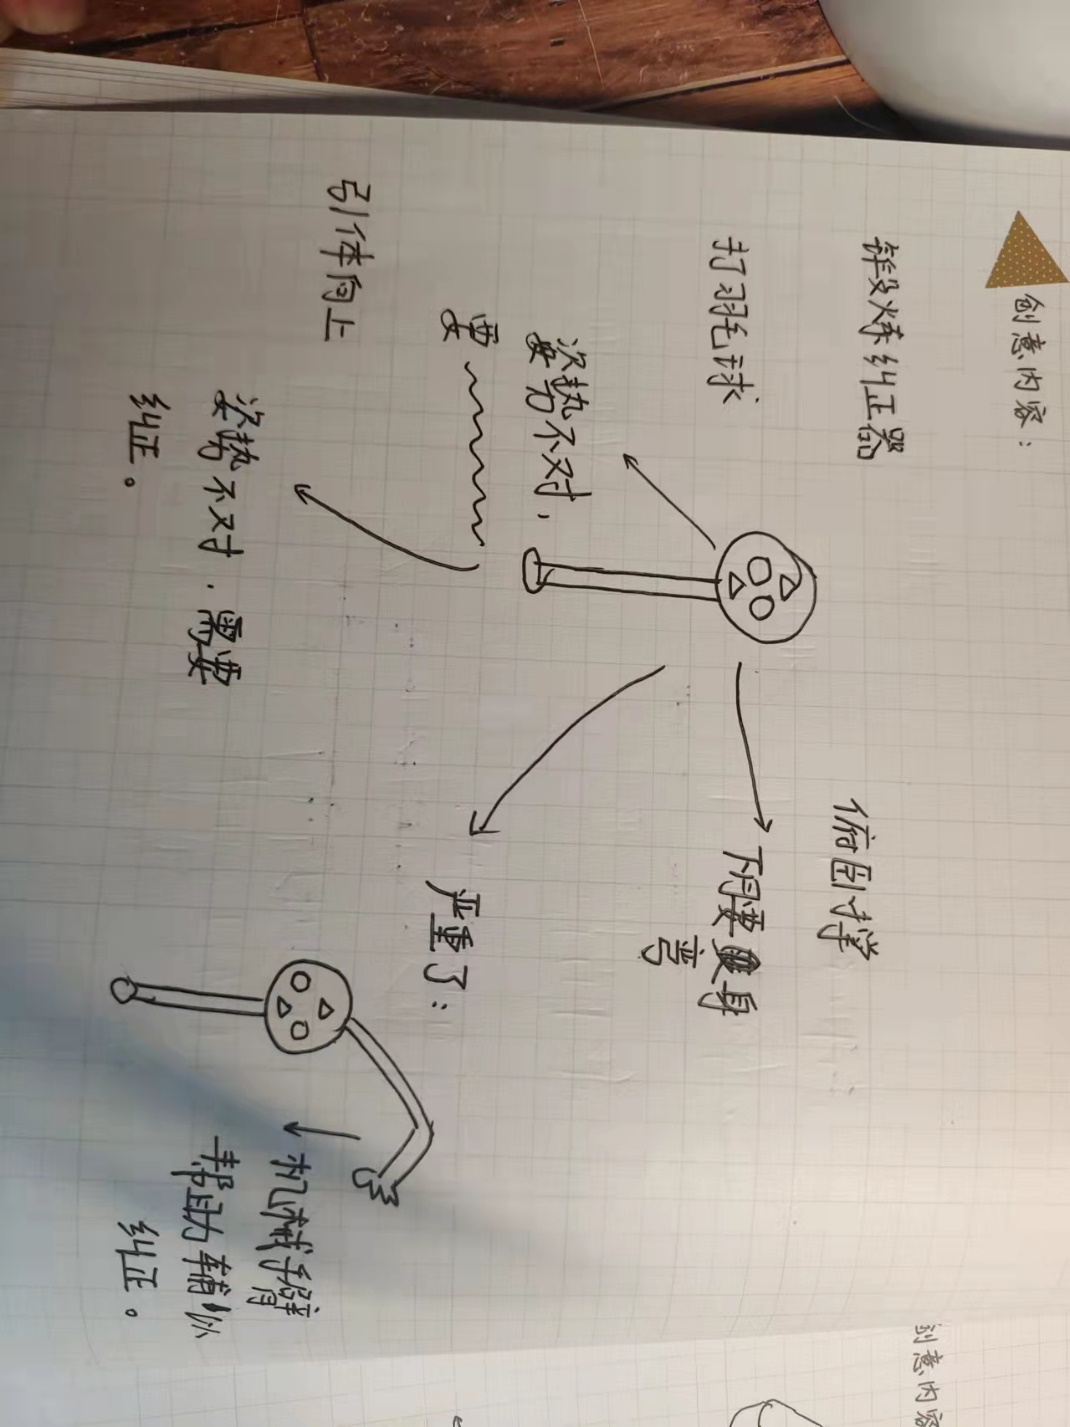 创意内容：
锻炼纠正器
打羽毛球
姿势不对，
要
引体向上
姿势不对，需要
纠正。
俯卧撑
不要
身
弯
严重了：
机械手臂
帮助辅以
纠正。
创意内容